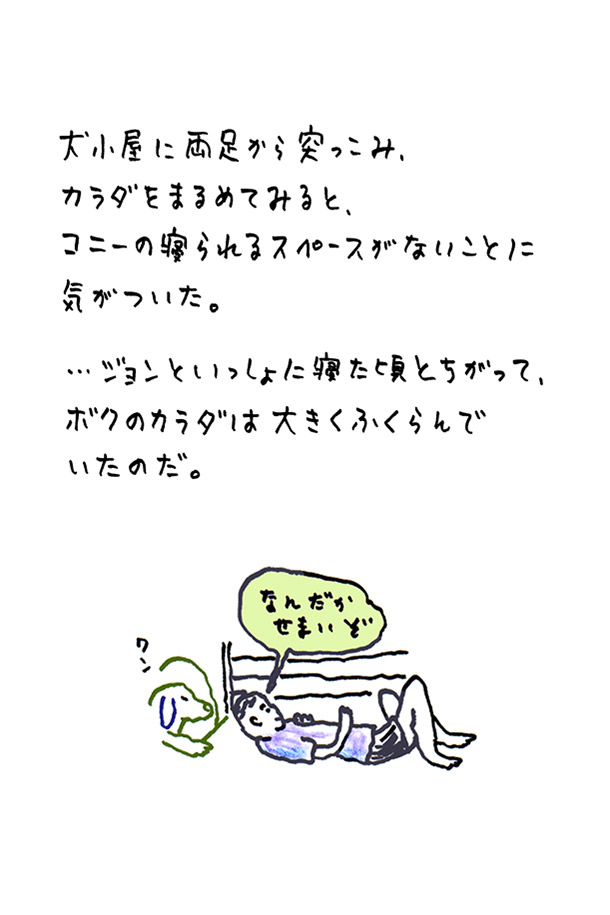 犬小屋に両足から突っこみ、
カラダをまるめてみると、
コニーの寝られるスペースがないことに
気がついた。
…ジョンといっしょに寝た頃とちがって、
ボクのカラダは大きくふくらんで
いたのだ。
なんだか
せまいぞ
ワン